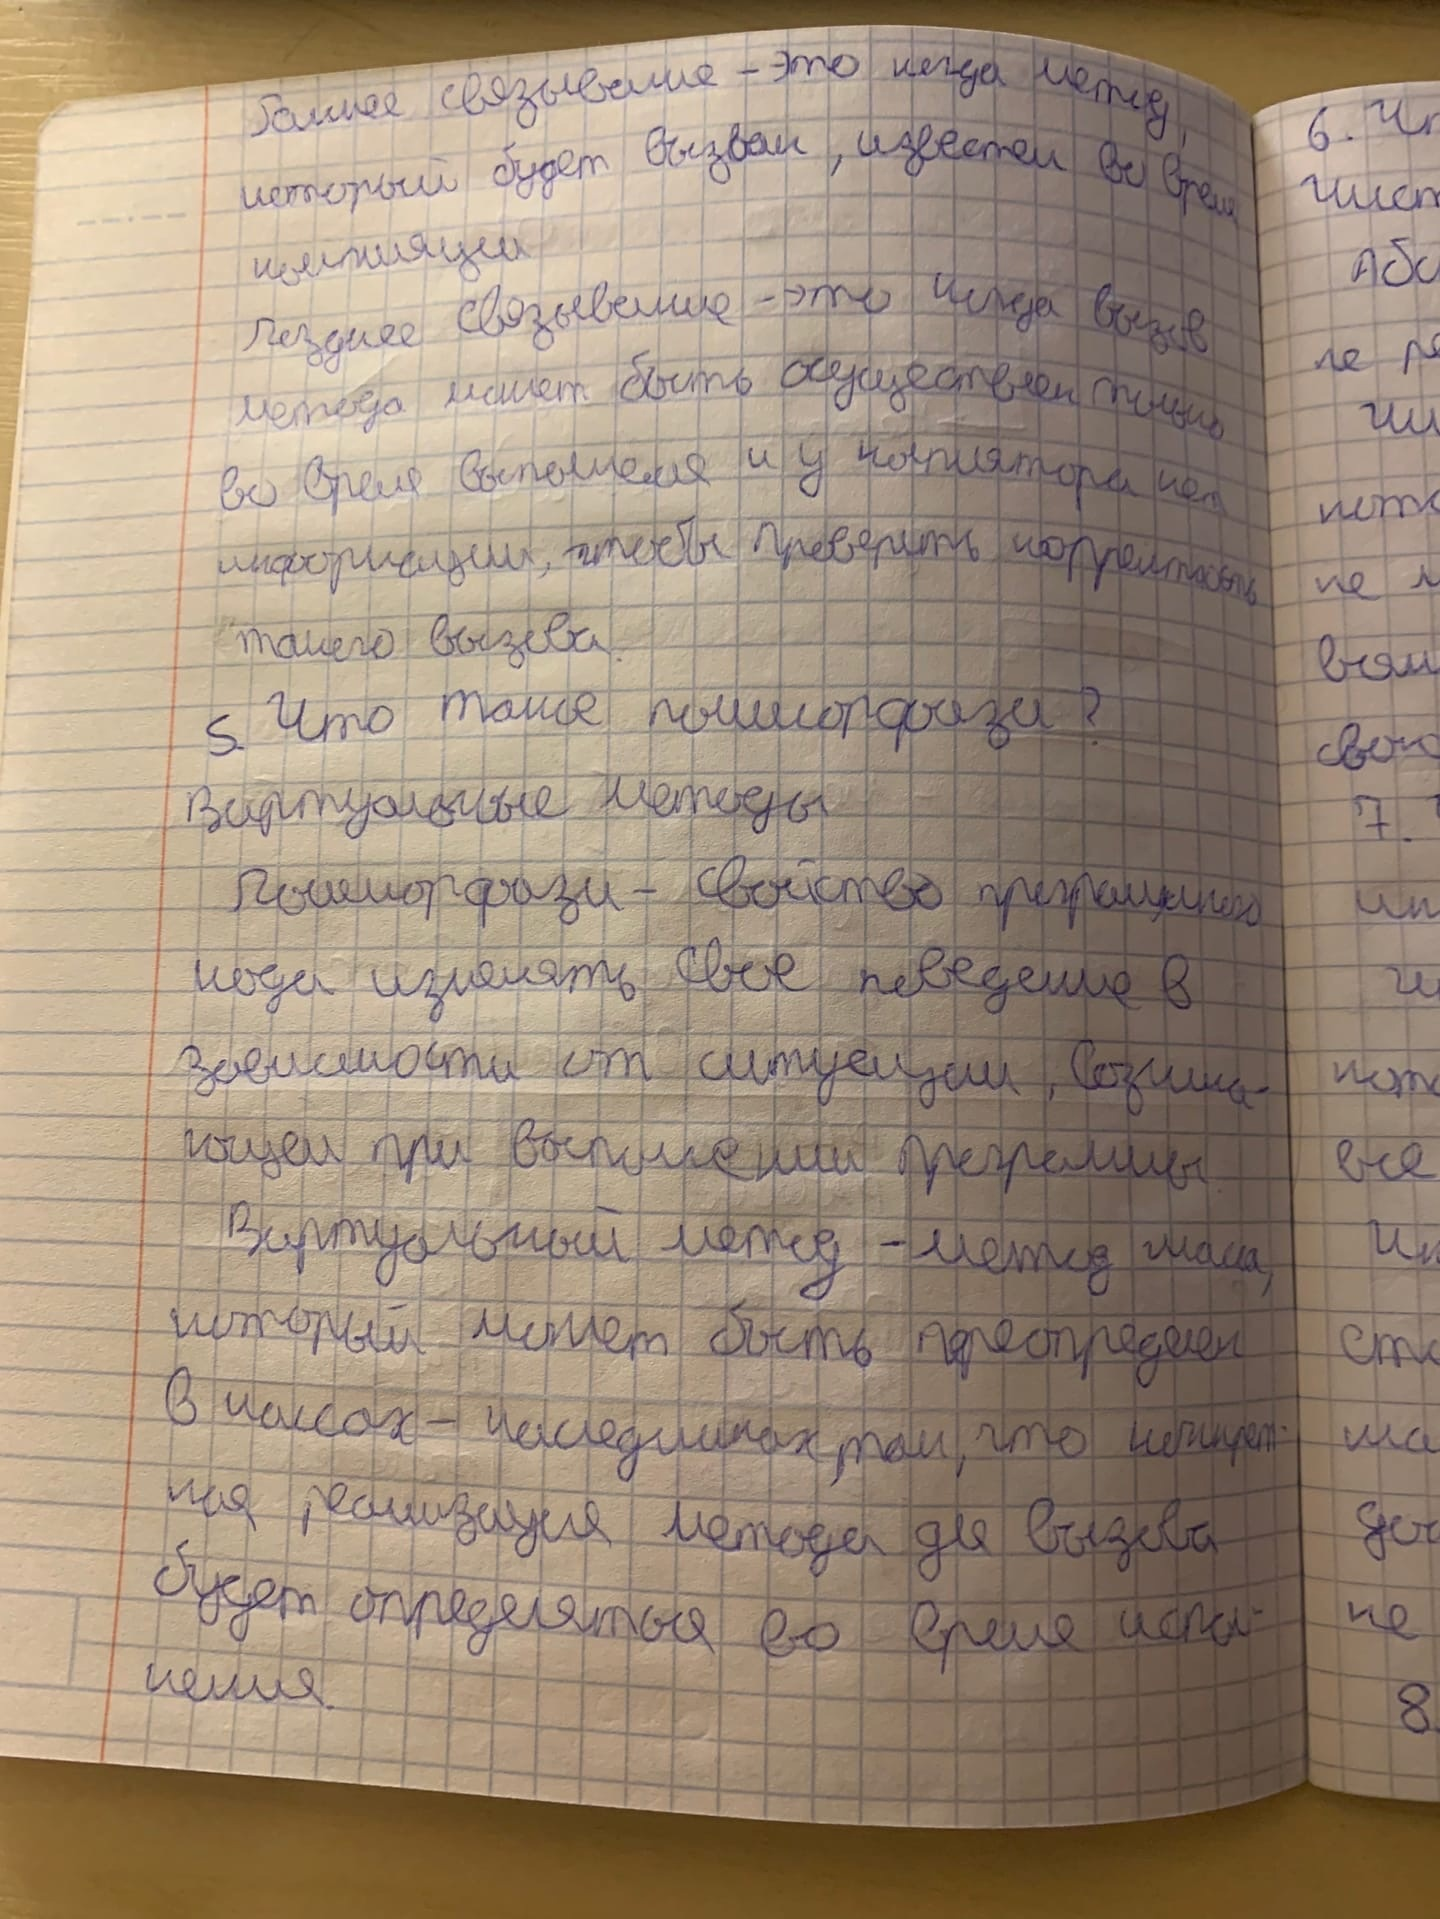 Раннее связывание – это когда метод,
который будет вызван, известен во время
компиляции
Позднее связывание – это когда вызов
метода может быть осуществлен только
во время выполнения и у компилятора нет
информации, чтобы проверить корректность
такого вызова.
5. Что такое полиморфизм?
Виртуальные методы
Полиморфизм – свойство программного
кода изменять свое поведение в
зависимости от ситуации, возника-
ющей при выполнении программы
Виртуальный метод – метод класса,
который может быть переопределен
в классах – наследниках, так, что конкрет-
ная реализация метода для вызова
будет определяться во время испол-
нения.
6.
Абс
не
7.
не
8.